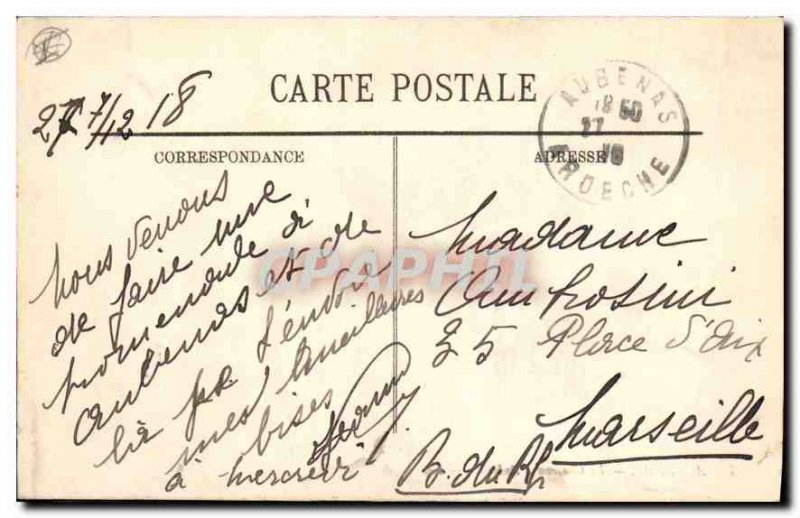 CARTE POSTALE
27/12 18
CORRESPONDANCE
ADRESSE
AUBENAS
18 50
27
18
ARDECHE
Nous venons
de faire une
promenade à
Aubenas et de
là je t'envoie
mes meilleures
bises
à mercredi
Madame
Ambrosini
25 Place d'Aix
Marseille
B. du Rh
CPAPHIL